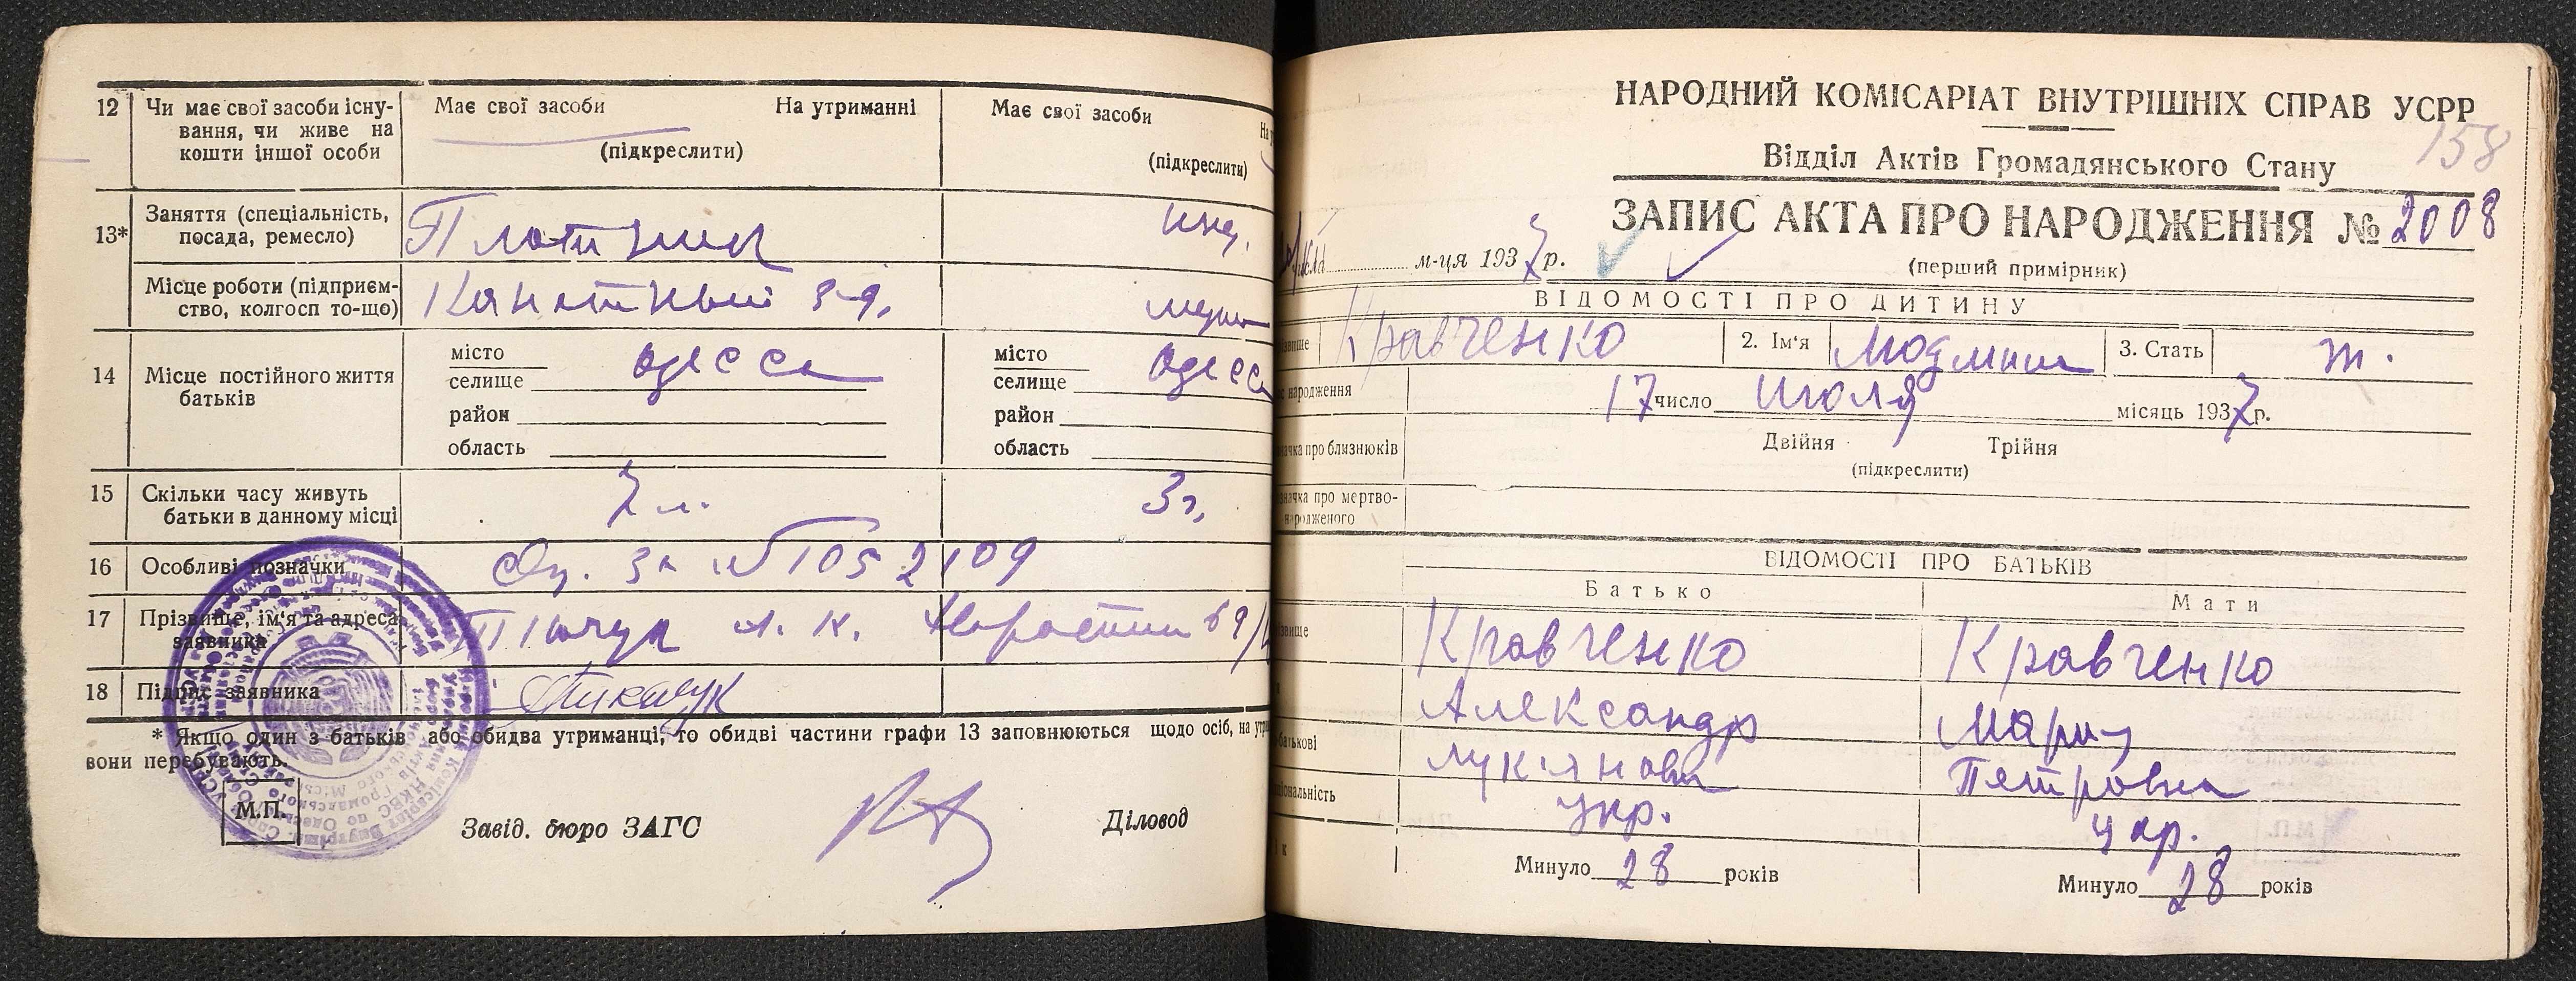 12 Чи має свої засоби існу-
вання, чи живе на
кошти іншої особи
Має свої засоби На утриманні
(підкреслити)
Має свої засоби
(підкреслити)
13* Заняття (спеціальність,
посада, ремесло)
Плотник
Місце роботи (підприєм-
ство, колгосп то-що)
Канатный з-д,
14 Місце постійного життя
батьків
місто
селище Одесса
район
область
місто
селище Одесса
район
область
15 Скільки часу живуть
батьки в данному місці
7 л. 3 г,
16 Особливі позначки
№ 1052109
17 Прізвище, ім'я та адреса
заявника
18 Підпис заявника
* Якщо один з батьків або обидва утриманці, то обидві частини графи 13 заповнюються щодо осіб, на
вони перебувають.
М.П.
Завід. бюро ЗАГС Діловод
НАРОДНИЙ КОМІСАРІАТ ВНУТРІШНІХ СПРАВ УСРР
158
Відділ Актів Громадянського Стану
ЗАПИС АКТА ПРО НАРОДЖЕННЯ № 2008
м-ця 1937 р.
(перший примірник)
ВІДОМОСТІ ПРО ДИТИНУ
Кравченко 2. Ім'я Людмила 3. Стать ж.
народження 17 число июля місяць 1937 р.
про близнюків
Двійня Трійня
(підкреслити)
про мертво-
народженого
ВІДОМОСТІ ПРО БАТЬКІВ
Батько Мати
Кравченко Кравченко
Александр Мария
Лукянович Петровна
укр. укр.
Минуло 28 років Минуло 28 років